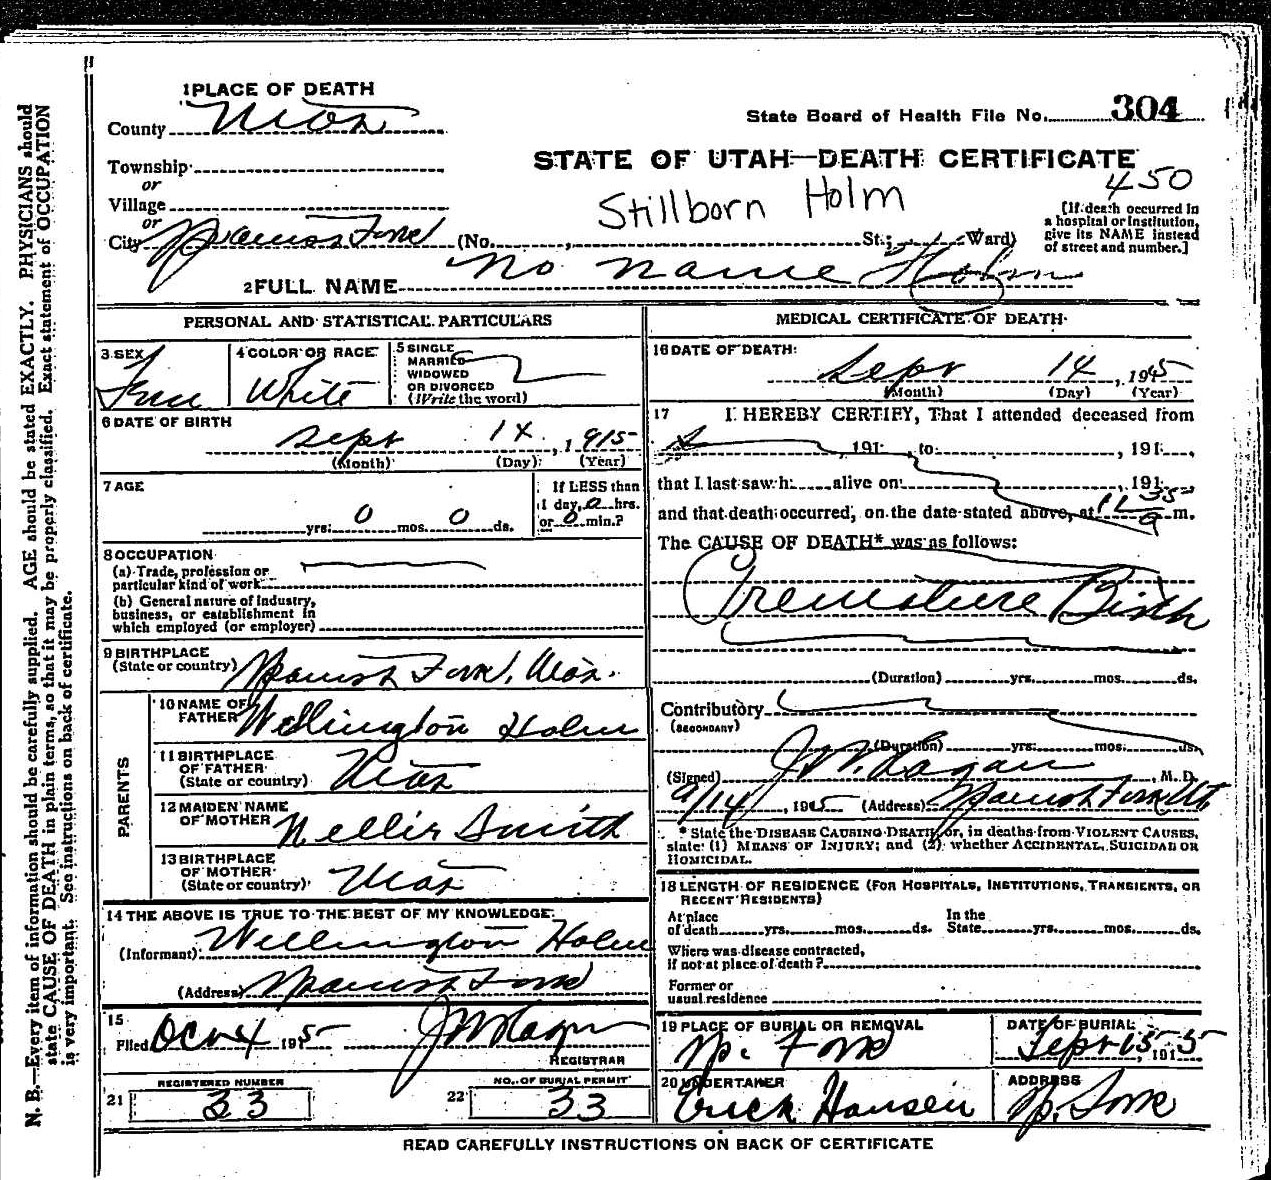 1 PLACE OF DEATH
County Utah
State Board of Health File No. 304
Township
or
STATE OF UTAH—DEATH CERTIFICATE
450
Village
or
Stillborn Holm
[If death occurred in
a hospital or institution,
give its NAME instead
of street and number.]
City Spanish Fork (No. , St.; Ward)
2 FULL NAME No name Holm
PERSONAL AND STATISTICAL PARTICULARS
3 SEX
Fem
4 COLOR OR RACE
White
5 SINGLE
MARRIED
WIDOWED
OR DIVORCED
(Write the word)
6 DATE OF BIRTH
Sept 14, 1915
(Month) (Day) (Year)
7 AGE
If LESS than
1 day, 0 hrs.
yrs. 0 mos. 0 ds. or 0 min.?
8 OCCUPATION
(a) Trade, profession or
particular kind of work
(b) General nature of Industry,
business, or establishment in
which employed (or employer)
9 BIRTHPLACE
(State or country) Spanish Fork, Utah.
PARENTS
10 NAME OF
FATHER Wellington Holm
11 BIRTHPLACE
OF FATHER
(State or country) Utah
12 MAIDEN NAME
OF MOTHER Nellie Smith
13 BIRTHPLACE
OF MOTHER
(State or country) Utah
14 THE ABOVE IS TRUE TO THE BEST OF MY KNOWLEDGE
(Informant) Wellington Holm
(Address) Spanish Fork
15
Filed Oct 4 1915
REGISTRAR
REGISTERED NUMBER
21 33
NO. OF BURIAL PERMIT
22 33
MEDICAL CERTIFICATE OF DEATH
16 DATE OF DEATH
Sept 14, 1915
(Month) (Day) (Year)
17 I HEREBY CERTIFY, That I attended deceased from
, 191 , to , 191 ,
that I last saw h alive on , 191 ,
and that death occurred, on the date stated above, at 11 35 a m.
The CAUSE OF DEATH* was as follows:
Premature Birth
(Duration) yrs. mos. ds.
Contributory
(SECONDARY)
(Duration) yrs. mos. ds.
(Signed) , M. D.
9/14, 1915 (Address) Spanish Fork Ut
* State the DISEASE CAUSING DEATH, or, in deaths from VIOLENT CAUSES,
state (1) MEANS OF INJURY; and (2) whether ACCIDENTAL, SUICIDAL OR
HOMICIDAL.
18 LENGTH OF RESIDENCE (FOR HOSPITALS, INSTITUTIONS, TRANSIENTS, OR
RECENT RESIDENTS)
At place
of death yrs. mos. ds.
In the
State yrs. mos. ds.
Where was disease contracted,
if not at place of death?
Former or
usual residence
19 PLACE OF BURIAL OR REMOVAL
Sp. Fork
DATE OF BURIAL
Sept 15, 1915
20 UNDERTAKER
Erick Hansen
ADDRESS
Sp. Fork
READ CAREFULLY INSTRUCTIONS ON BACK OF CERTIFICATE
N. B.—Every item of information should be carefully supplied. AGE should be stated EXACTLY. PHYSICIANS should
state CAUSE OF DEATH in plain terms, so that it may be properly classified. Exact statement of OCCUPATION
is very important. See instructions on back of certificate.